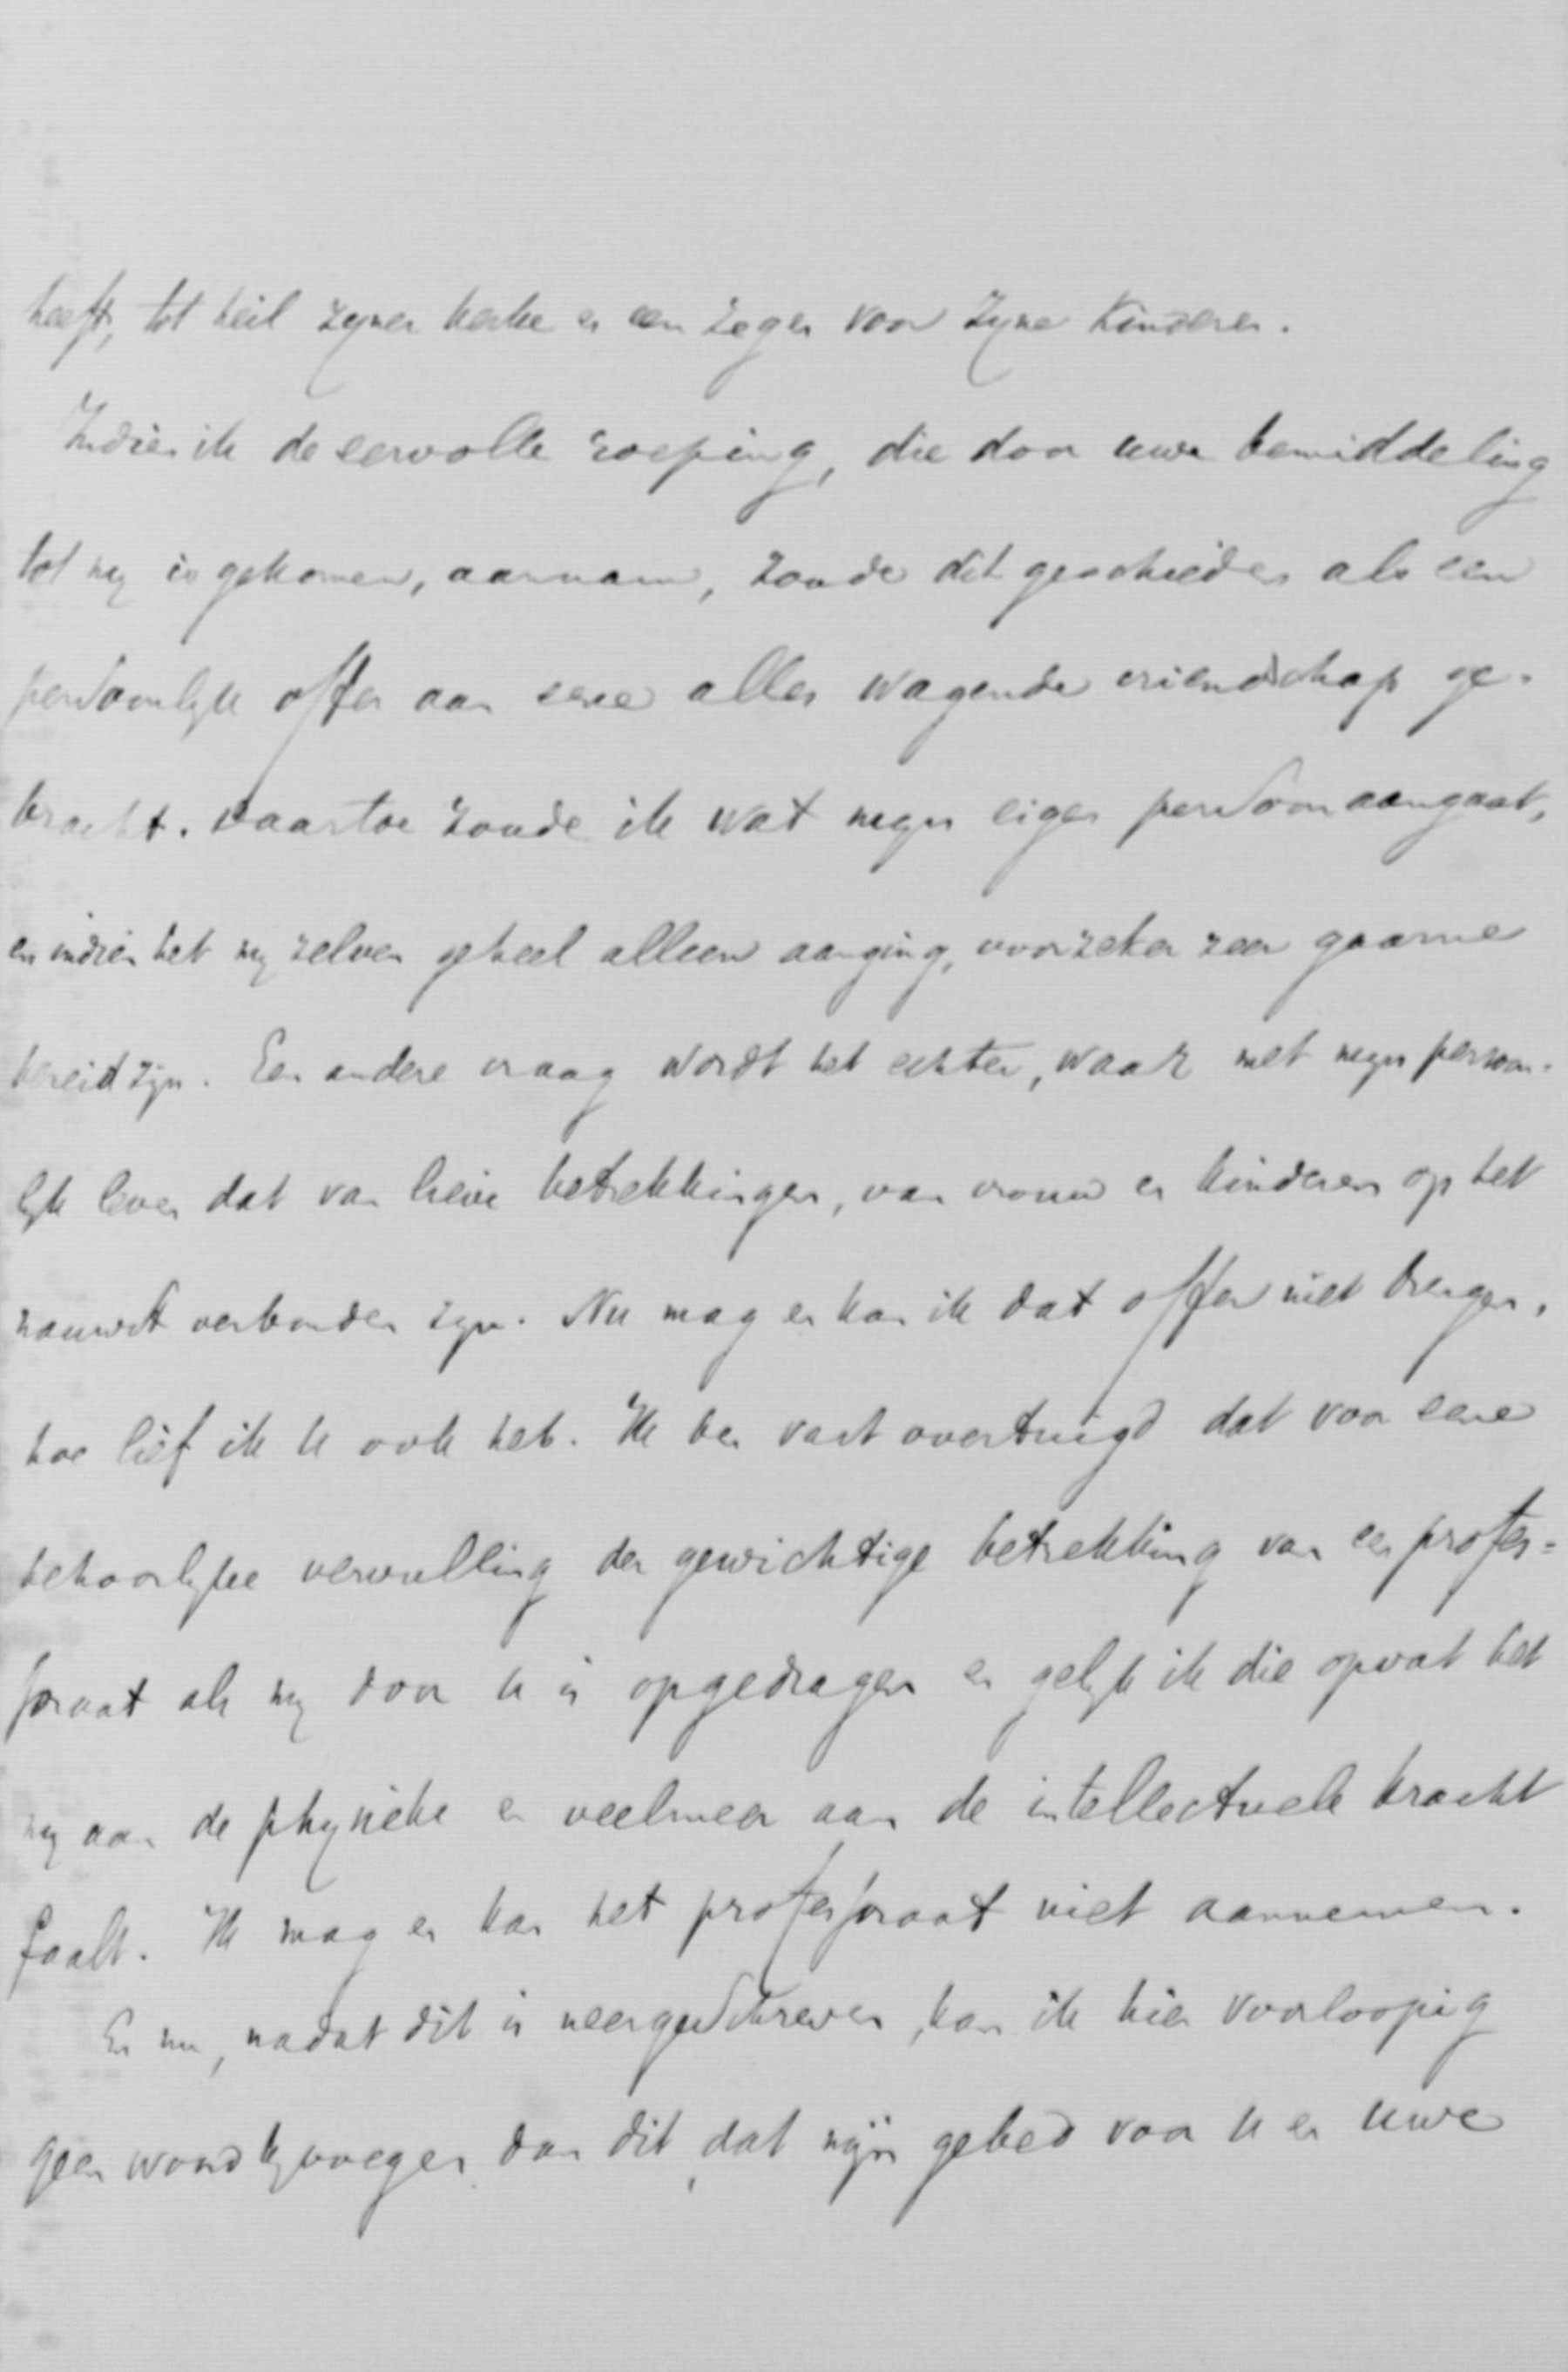 heeft, tot heil zyner kerke en een zegen voor zyne kinderen.
Indien ik de eervolle roeping, die door uwe bemiddeling
tot my is gekomen, aannam, zoude dit geschieden als een
persoonlyk offer aan eene alles wagende vriendschap ge-
bracht. Daartoe zoude ik wat myn eigen persoon aangaat,
en indien het my zelven geheel alleen aanging, voorzeker zeer gaarne
bereid zyn. Een andere vraag wordt het echter, waar met myn persoon-
lyk leven dat van lieve betrekkingen, van vrouw en kinderen op het
nauwst verbonden zyn. Nu mag en kan ik dat offer niet brengen,
hoe lief ik u ook heb. Ik ben vast overtuigd dat voor eene
behoorlyke vervulling der gewichtige betrekking van een profes-
soraat als my door u is opgedragen en gelyk ik die opvat het
my aan de physieke en veelmeer aan de intellectueele kracht
faalt. Ik mag en kan het professoraat niet aannemen.
En nu, nadat dit is neergeschreven, kan ik hier voorloopig
geen woord byvoegen dan dit, dat mijn gebed voor u en uwe